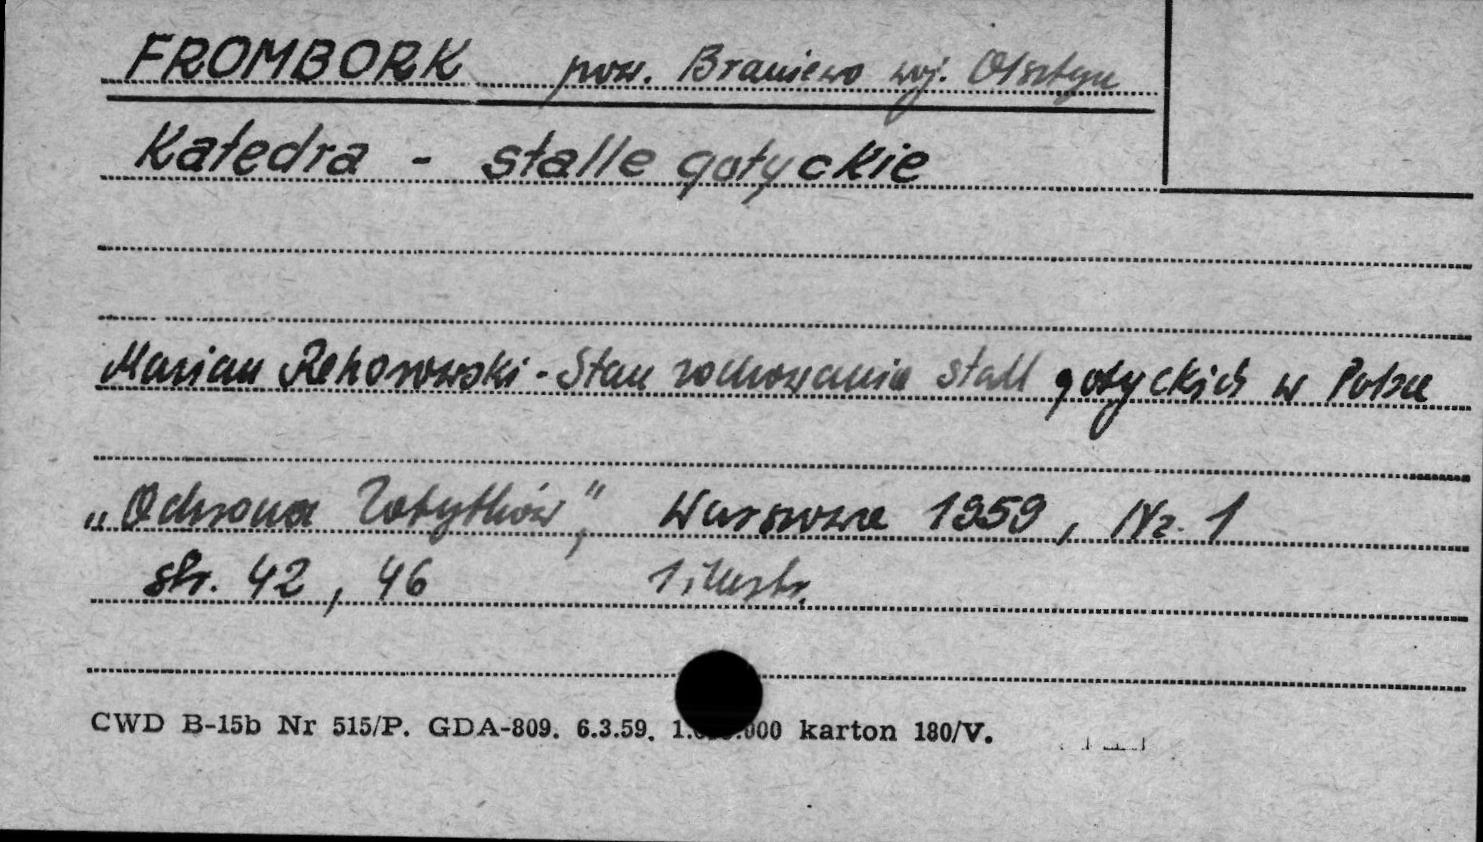 FROMBORK pow. Braniewo woj. Olsztyn
Katedra - stalle gotyckie
Marian Rehorowski - Stan zachowania stall gotyckich w Polsce
„Ochrona Zabytków”, Warszawa 1959, Nr. 1
str. 42, 46 1 illustr.
CWD B-15b Nr 515/P. GDA-809. 6.3.59. karton 180/V.